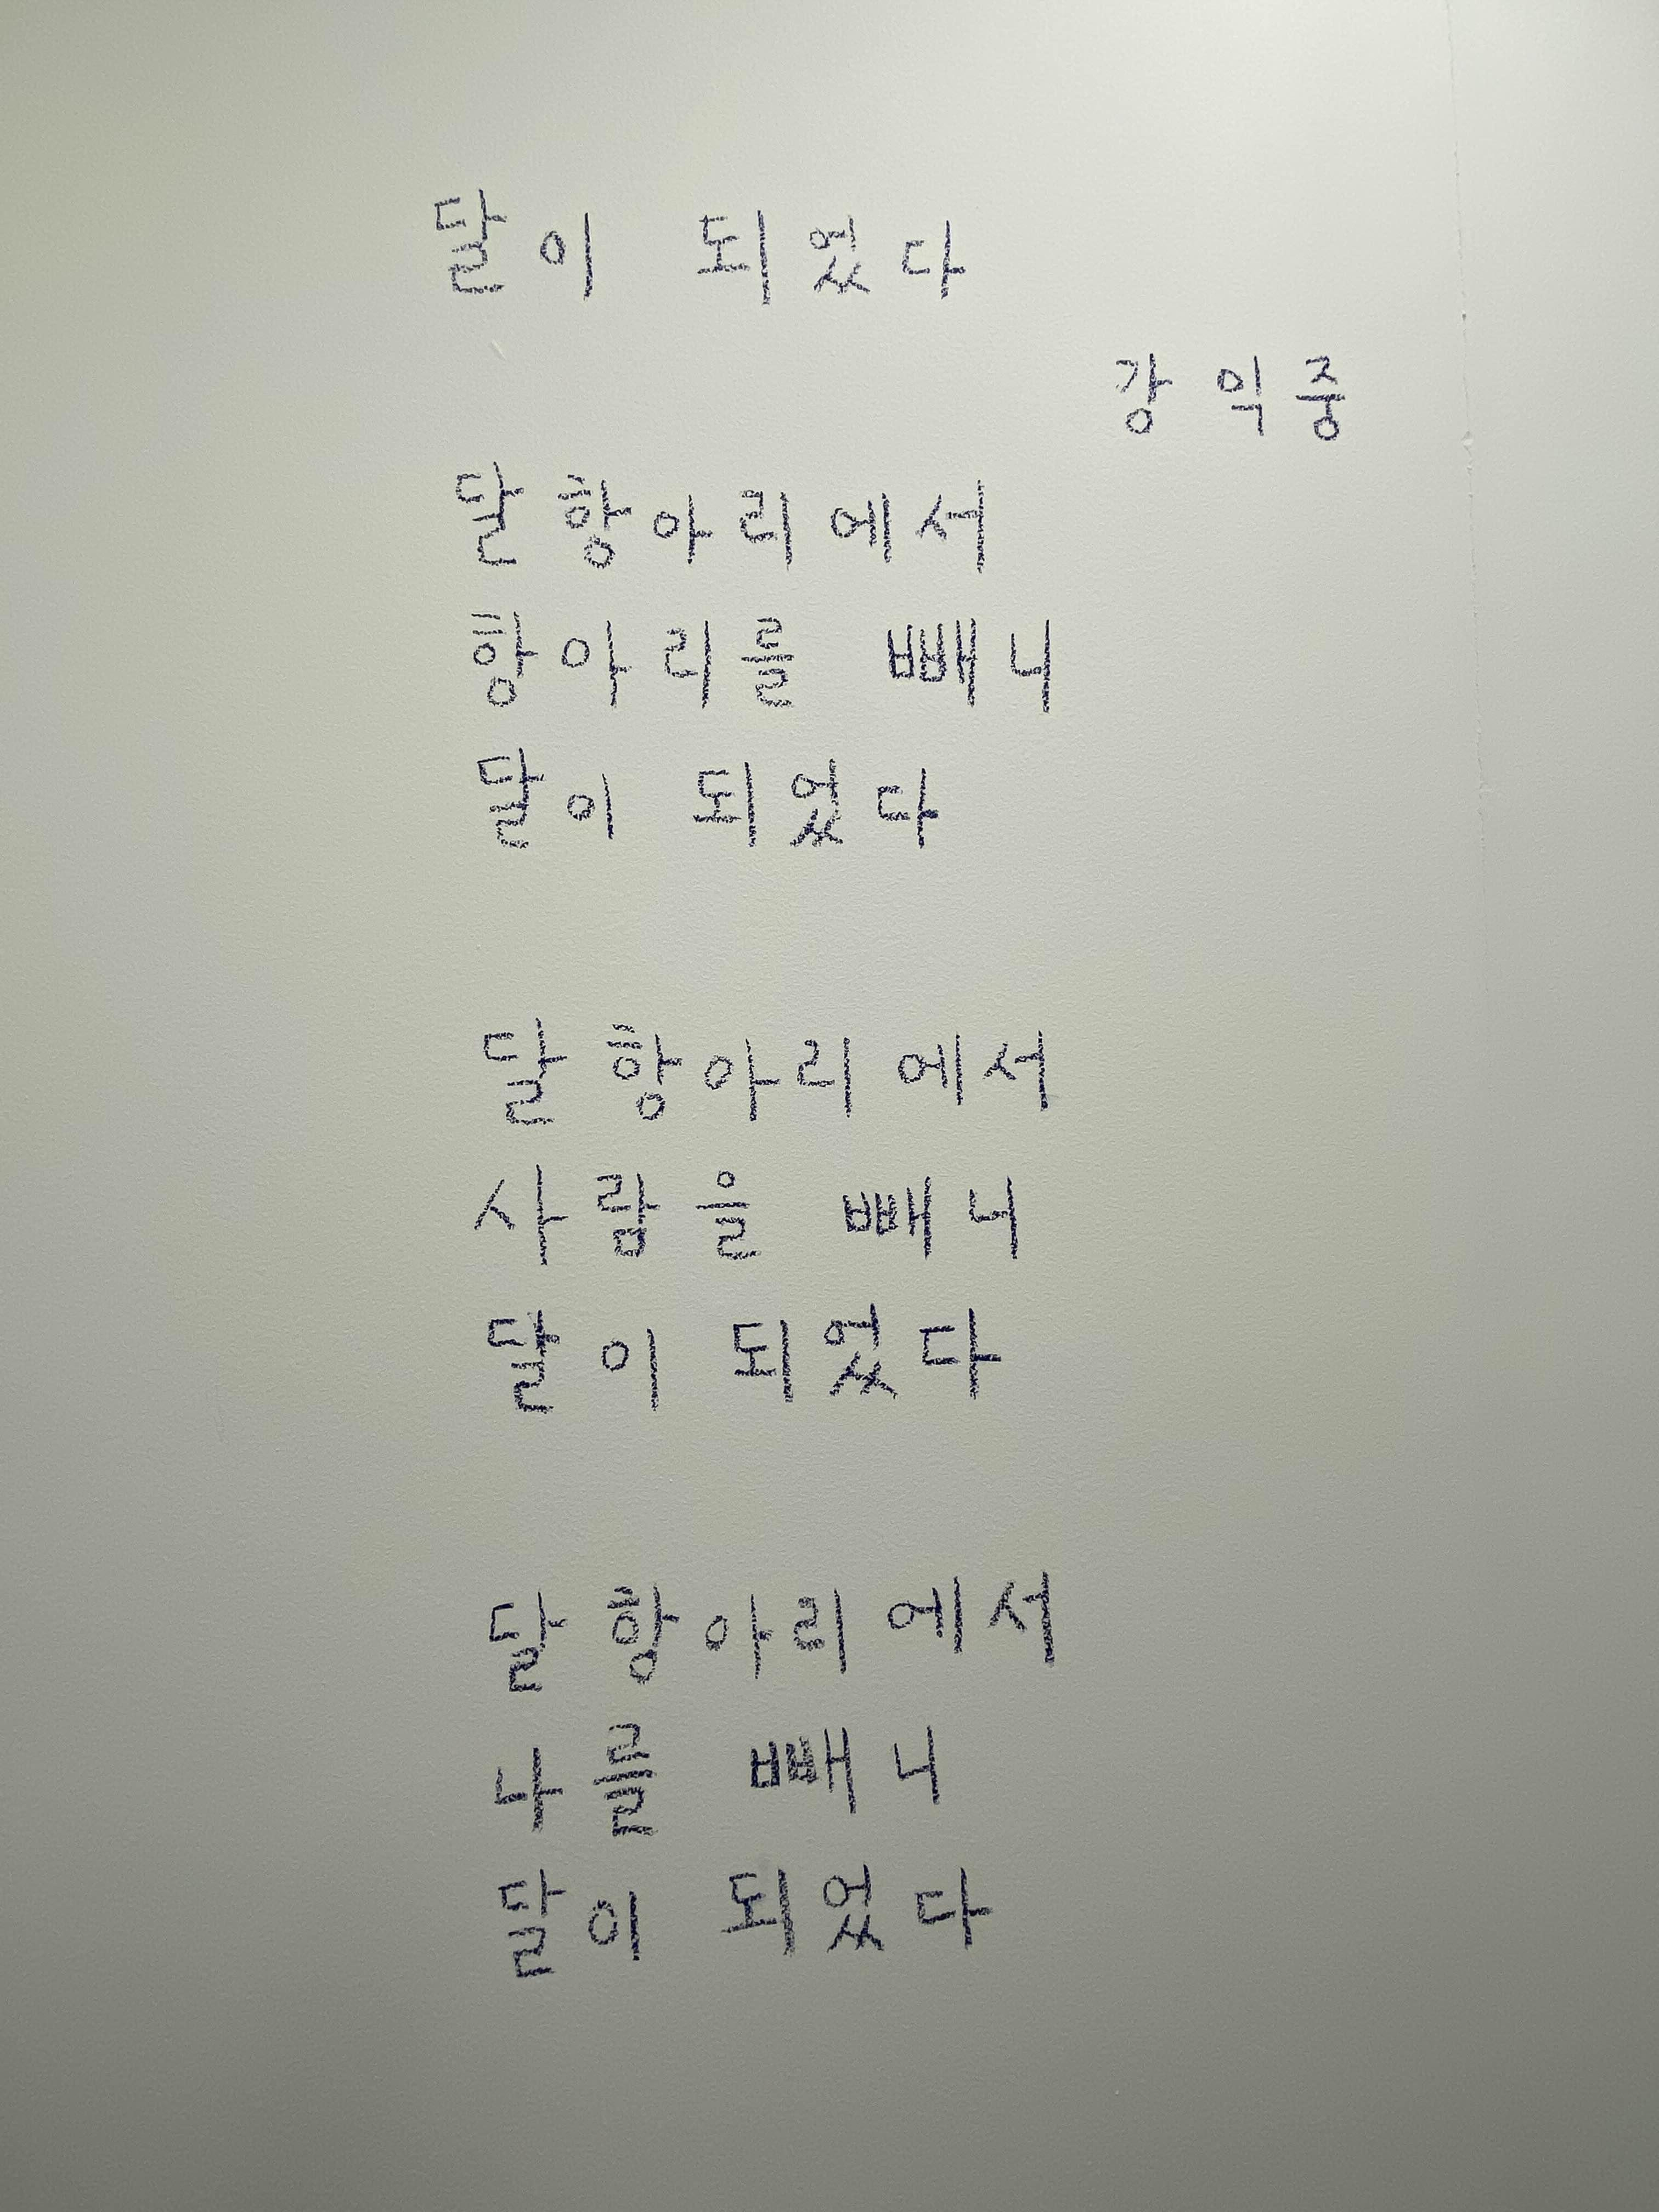 달이 되었다
강익중
달항아리에서
항아리를 빼니
달이 되었다
달항아리에서
사람을 빼니
달이 되었다
달항아리에서
나를 빼니
달이 되었다